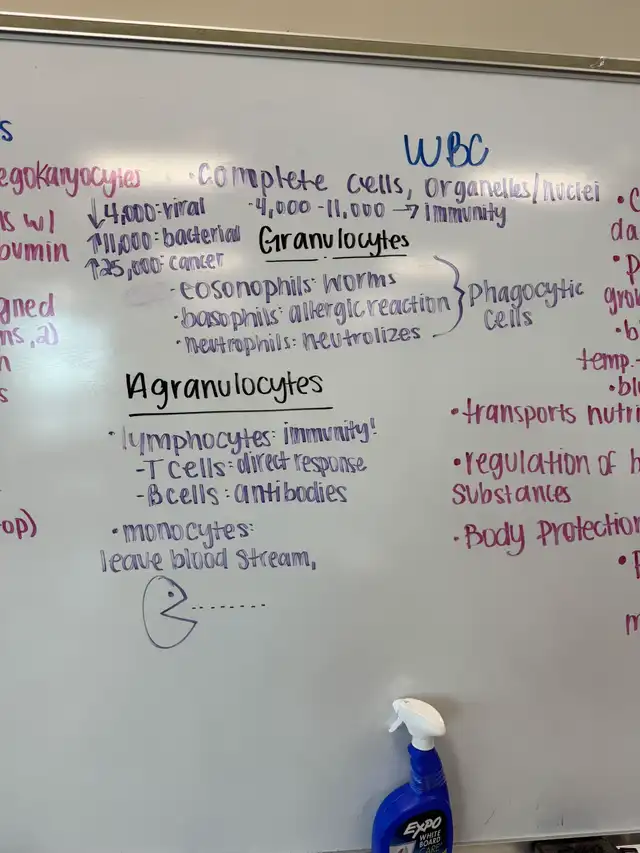 s
WBC
egokaryocytes
ns w/
bumin
gned
ns, 2)
n
s
op)
· complete cells, organelles/nuclei
↓4,000: viral
↑11,000: bacterial
↑25,000: cancer
· 4,000 - 11,000 → immunity
Granulocytes
· eosonophils: worms
· basophils: allergic reaction
· neutrophils: neutrolizes
} phagocytic
cells
Agranulocytes
· lymphocytes: immunity!
- T cells: direct response
- B cells: antibodies
· monocytes:
leave blood stream,
· C
da
· p
grou
· b
temp.-
· blu
· transports nutri
· regulation of h
substances
· Body Protection
· P
m
EXPO
WHITE
BOARD
CARE